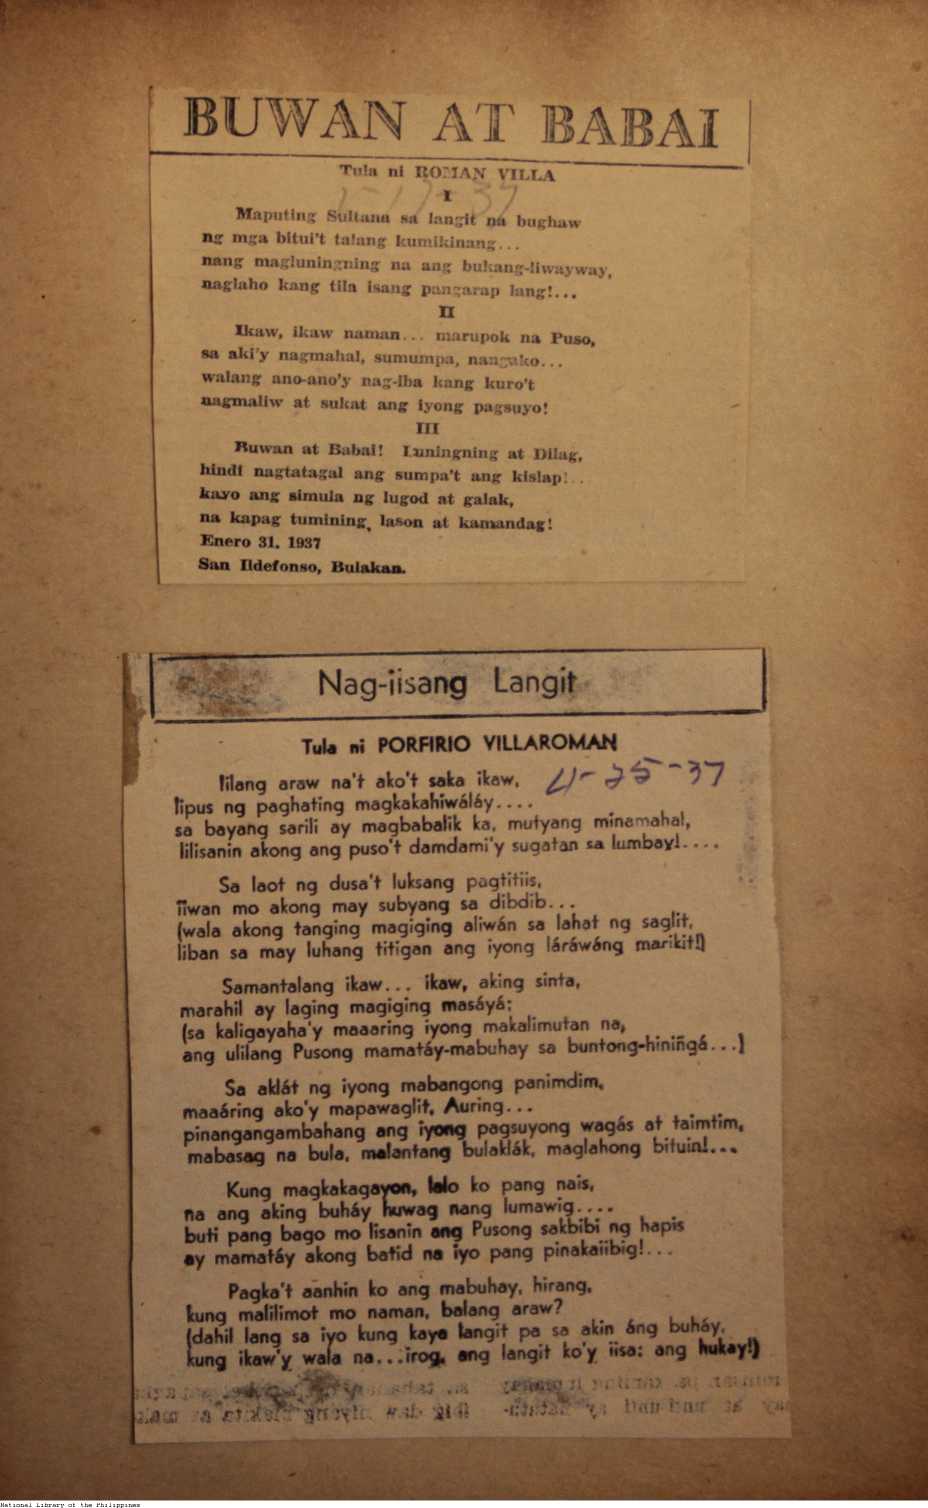 BUWAN AT BABAI
Tula ni ROMAN VILLA
I
Maputing Sultana sa langit na bughaw
ng mga bitui't talang kumikinang...
nang magluningning na ang bukang-liwayway,
naglaho kang tila isang pangarap lang!...
II
Ikaw, ikaw naman... marupok na Puso,
sa aki'y nagmahal, sumumpa, nangako...
walang ano-ano'y nag-iba kang kuro't
nagmaliw at sukat ang iyong pagsuyo!
III
Buwan at Babai! Luningning at Dilag,
hindi nagtatagal ang sumpa't ang kislap!..
kayo ang simula ng lugod at galak,
na kapag tumining, lason at kamandag!
Enero 31, 1937
San Ildefonso, Bulakan.
Nag-iisang Langit
Tula ni PORFIRIO VILLAROMAN
4-25-37
Iilang araw na't ako't saka ikaw,
lipus ng paghating magkakahiwáláy....
sa bayang sarili ay magbabalik ka, mutyang minamahal,
lilisanin akong ang puso't damdami'y sugatan sa lumbay!....
Sa laot ng dusa't luksang pagtitiis,
iiwan mo akong may subyang sa dibdib...
(wala akong tanging magiging aliwán sa lahat ng saglit,
liban sa may luhang titigan ang iyong láráwáng marikit!)
Samantalang ikaw... ikaw, aking sinta,
marahil ay laging magiging masáyá;
(sa kaligayaha'y maaaring iyong makalimutan na,
ang ulilang Pusong mamatáy-mabuhay sa buntong-hiningá...)
Sa aklát ng iyong mabangong panimdim,
maaáring ako'y mapawaglit, Auring...
pinangangambahang ang iyong pagsuyong wagás at taimtim,
mabasag na bula, malantang bulaklák, maglahong bituin!...
Kung magkakagayon, lalo ko pang nais,
na ang aking buháy huwag nang lumawig....
buti pang bago mo lisanin ang Pusong sakbibi ng hapis
ay mamatáy akong batid na iyo pang pinakaiibig!...
Pagka't aanhin ko ang mabuhay, hirang,
kung malilimot mo naman, balang araw?
(dahil lang sa iyo kung kaya langit pa sa akin áng buháy,
kung ikaw'y wala na...irog, ang langit ko'y iisa: ang hukay!)
National Library of the Philippines